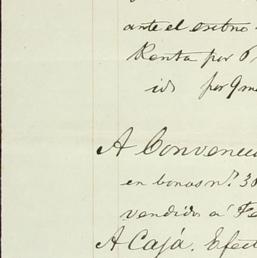 ante el esstno
Renta por 6
id por 9 m
A Convenci
en bonos nº. 30
vendidos a Fe
A Caja. Efect